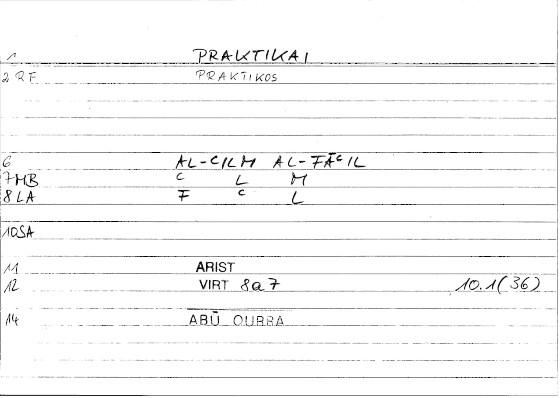 1 PRAKTIKAI
2 RF PRAKTIKOS
6 AL-CILM AL-FĀCIL
7 MB C L M
8 LA F C L
10 SA
11 ARIST
12 VIRT 8a7 10.1(36)
14 ABŪ QURRA